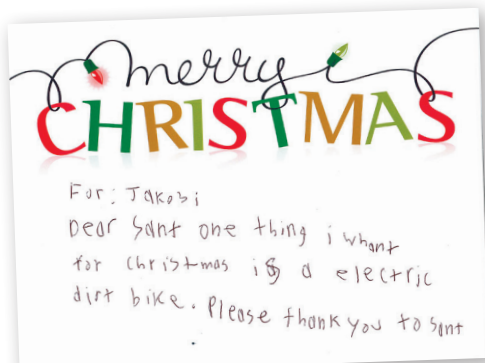 merry
CHRISTMAS
For: Jakobi
Dear Sant one thing i whant
for christmas is a electric
dirt bike. Please thank you to sant